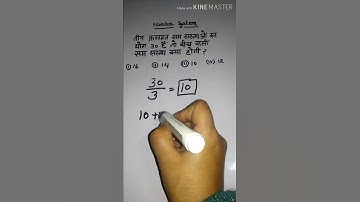 Made with KINEMASTER
Number System
तीन क्रमागत सम संख्याओं का
योग 30 है तो बीच वाली
सम संख्या क्या होगी ?
(i) 16 (ii) 14 (iii) 10 (iv) 12
30/3 = 10
10 +